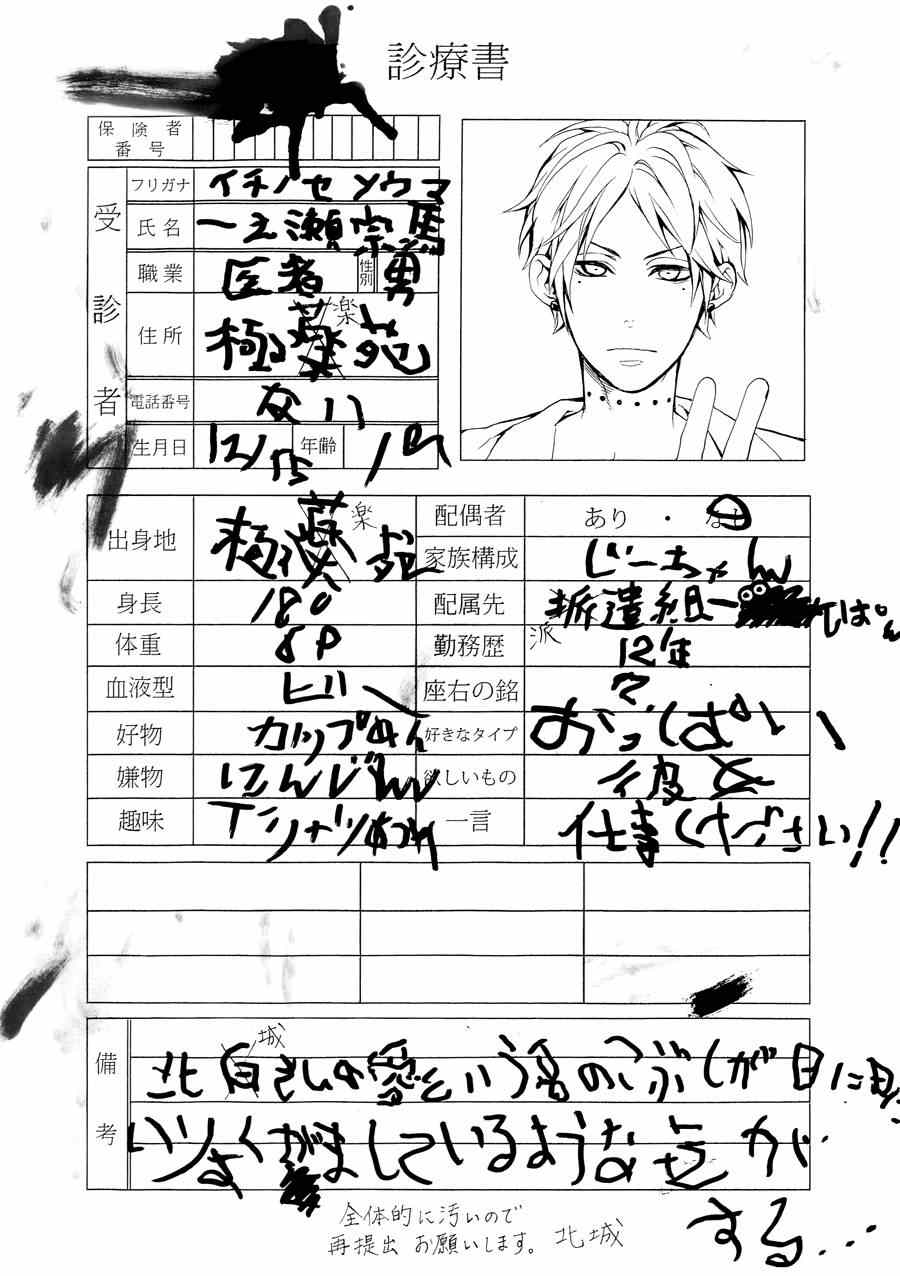 診療書
保険者番号
受診者
フリガナ イチノセ ソウマ
氏名 一之瀬宗馬
職業 医者 性別 男
住所 極薬苑 楽
電話番号 ない
生月日 12/15 年齢 19
出身地 極薬苑 楽
配偶者 あり・なし
家族構成 じーちゃん
身長 180
配属先 派遣組一 てぱん
派
体重 69
勤務歴 12年
血液型 ビー
座右の銘 ?
好物 カップめん
好きなタイプ おっぱい
嫌物 にんじん
欲しいもの 彼女
趣味 Tシャツあつめ
一言 仕事ください!!
備考
北白さんの愛という名のこぶしが目に見
城
いりよくがましているような気が
する...
全体的に汚いので
再提出 お願いします。 北城